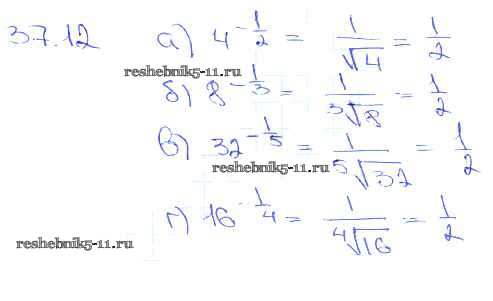 37.12 а) 4^{-\frac{1}{2}} = \frac{1}{\sqrt{4}} = \frac{1}{2}
reshebnik5-11.ru
б) 8^{-\frac{1}{3}} = \frac{1}{\sqrt[3]{8}} = \frac{1}{2}
в) 32^{-\frac{1}{5}} = \frac{1}{\sqrt[5]{32}} = \frac{1}{2}
reshebnik5-11.ru
г) 16^{-\frac{1}{4}} = \frac{1}{\sqrt[4]{16}} = \frac{1}{2}
reshebnik5-11.ru